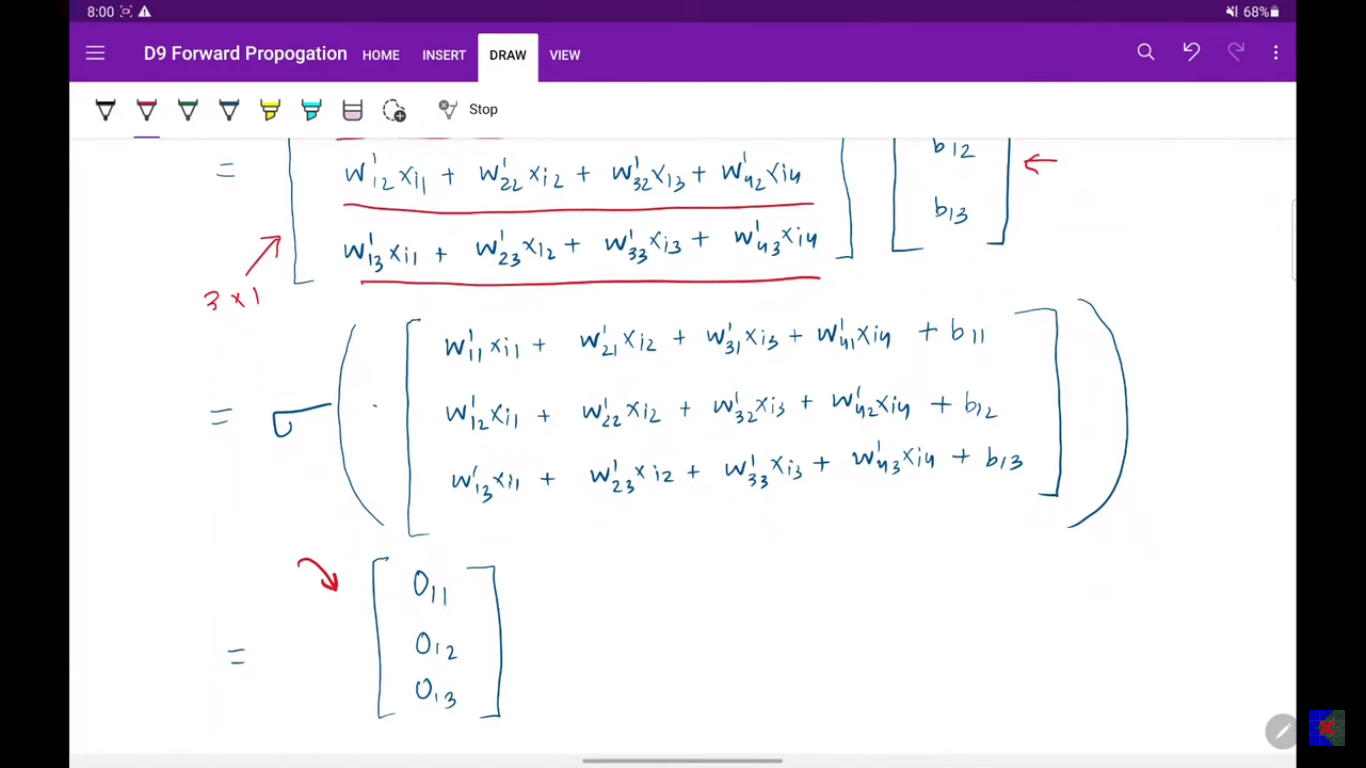 8:00 68%
D9 Forward Propogation HOME INSERT DRAW VIEW
Stop
= w¹₁₂ xi1 + w¹₂₂ xi2 + w¹₃₂ xi3 + w¹₄₂ xi4 b12
w¹₁₃ xi1 + w¹₂₃ xi2 + w¹₃₃ xi3 + w¹₄₃ xi4 b13
3 × 1
w¹₁₁ xi1 + w¹₂₁ xi2 + w¹₃₁ xi3 + w¹₄₁ xi4 + b11
= σ ( w¹₁₂ xi1 + w¹₂₂ xi2 + w¹₃₂ xi3 + w¹₄₂ xi4 + b12 )
w¹₁₃ xi1 + w¹₂₃ xi2 + w¹₃₃ xi3 + w¹₄₃ xi4 + b13
O11
= O12
O13